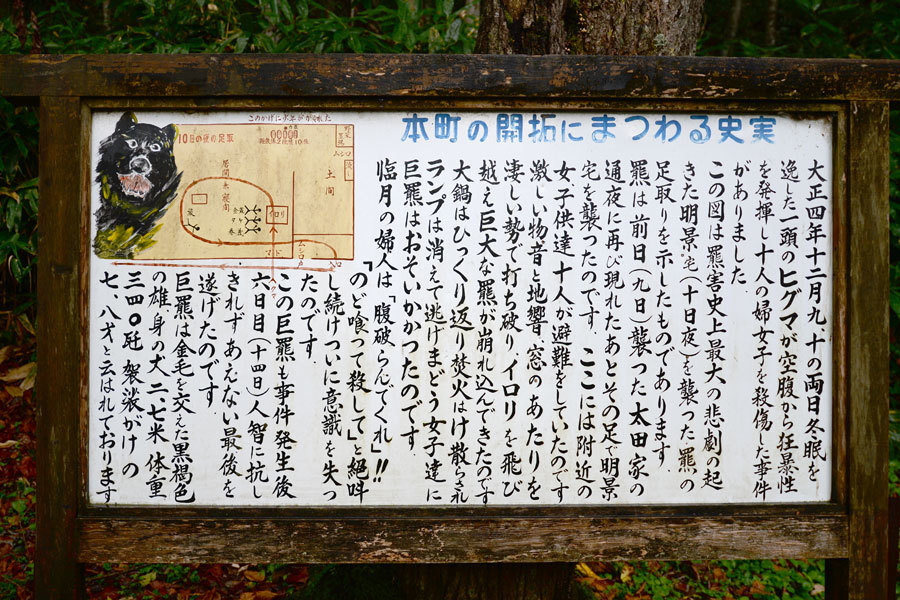 本町の開拓にまつわる史実
大正四年十二月九、十の両日冬眠を
逸した一頭のヒグマが空腹から狂暴性
を発揮し十人の婦女子を殺傷した事件
がありました.
この図は羆害史上最大の悲劇の起
きた明景宅(十日夜)を襲った羆の
足取りを示したものであります.
羆は前日(九日)襲った太田家の
通夜に再び現れたあとその足で明景
宅を襲ったのです. ここには附近の
女子供達十人が避難をしていたのです
激しい物音と地響、窓のあたりを
凄しい勢で打ち破りイロリを飛び
越え巨大な羆が崩れ込んできたのです
大鍋はひっくり返り焚火はけ散らされ
ランプは消えて逃げまどう女子達に
巨羆はおそいかかったのです.
臨月の婦人は「腹破らんでくれ」!!
「のど喰って殺して」と絶叫
し続けついに意識を失っ
たのです.
この巨羆も事件発生後
六日目(十四日)人智に抗し
きれずあえない最後を
遂げたのです.
巨羆は金毛を交えた黒褐色
の雄身の丈二.七米 体重
三四〇瓩 袈裟がけの
七、八才と云はれております
このかげに少年がかくれた
10日の夜の足取
居間兼寝間
土間
イロリ
ムシロ
マド
入口